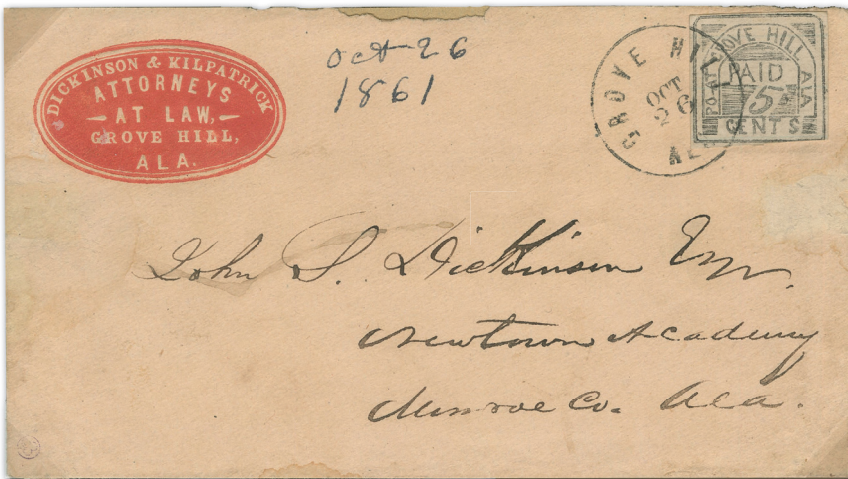 DICKINSON & KILPATRICK
ATTORNEYS
AT LAW,
GROVE HILL,
ALA.
Oct 26
1861
GROVE HILL
OCT
26
ALA
PO. AT GROVE HILL ALA.
PAID
5
CENTS
John S. Dickinson Esqr.
Newtown Academy
Monroe Co. Ala.